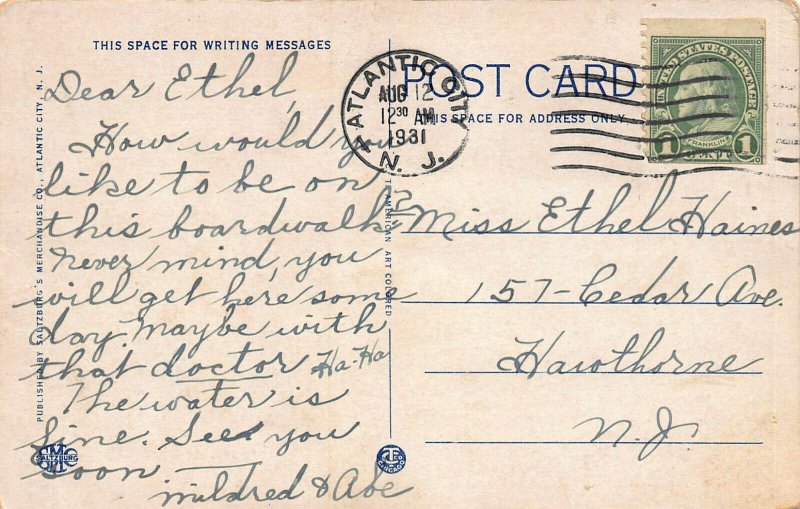 THIS SPACE FOR WRITING MESSAGES
Dear Ethel,
How would you
like to be on
this boardwalk?
Never mind, you
will get here some
day. Maybe with
that doctor Ha-Ha
The water is
fine. See you
soon
Mildred & Abe
PUBLISHED BY SALTZBURG'S MERCHANDISE CO., ATLANTIC CITY, N. J.
SMC
SALTZBURG
AMERICAN ART COLORED
CHICAGO
POST CARD
THIS SPACE FOR ADDRESS ONLY
ATLANTIC CITY
AUG 12
12 30 AM
1931
N. J.
UNITED STATES POSTAGE
FRANKLIN
1 1
Miss Ethel Haines
157-Cedar Ave.
Hawthorne
N.J.